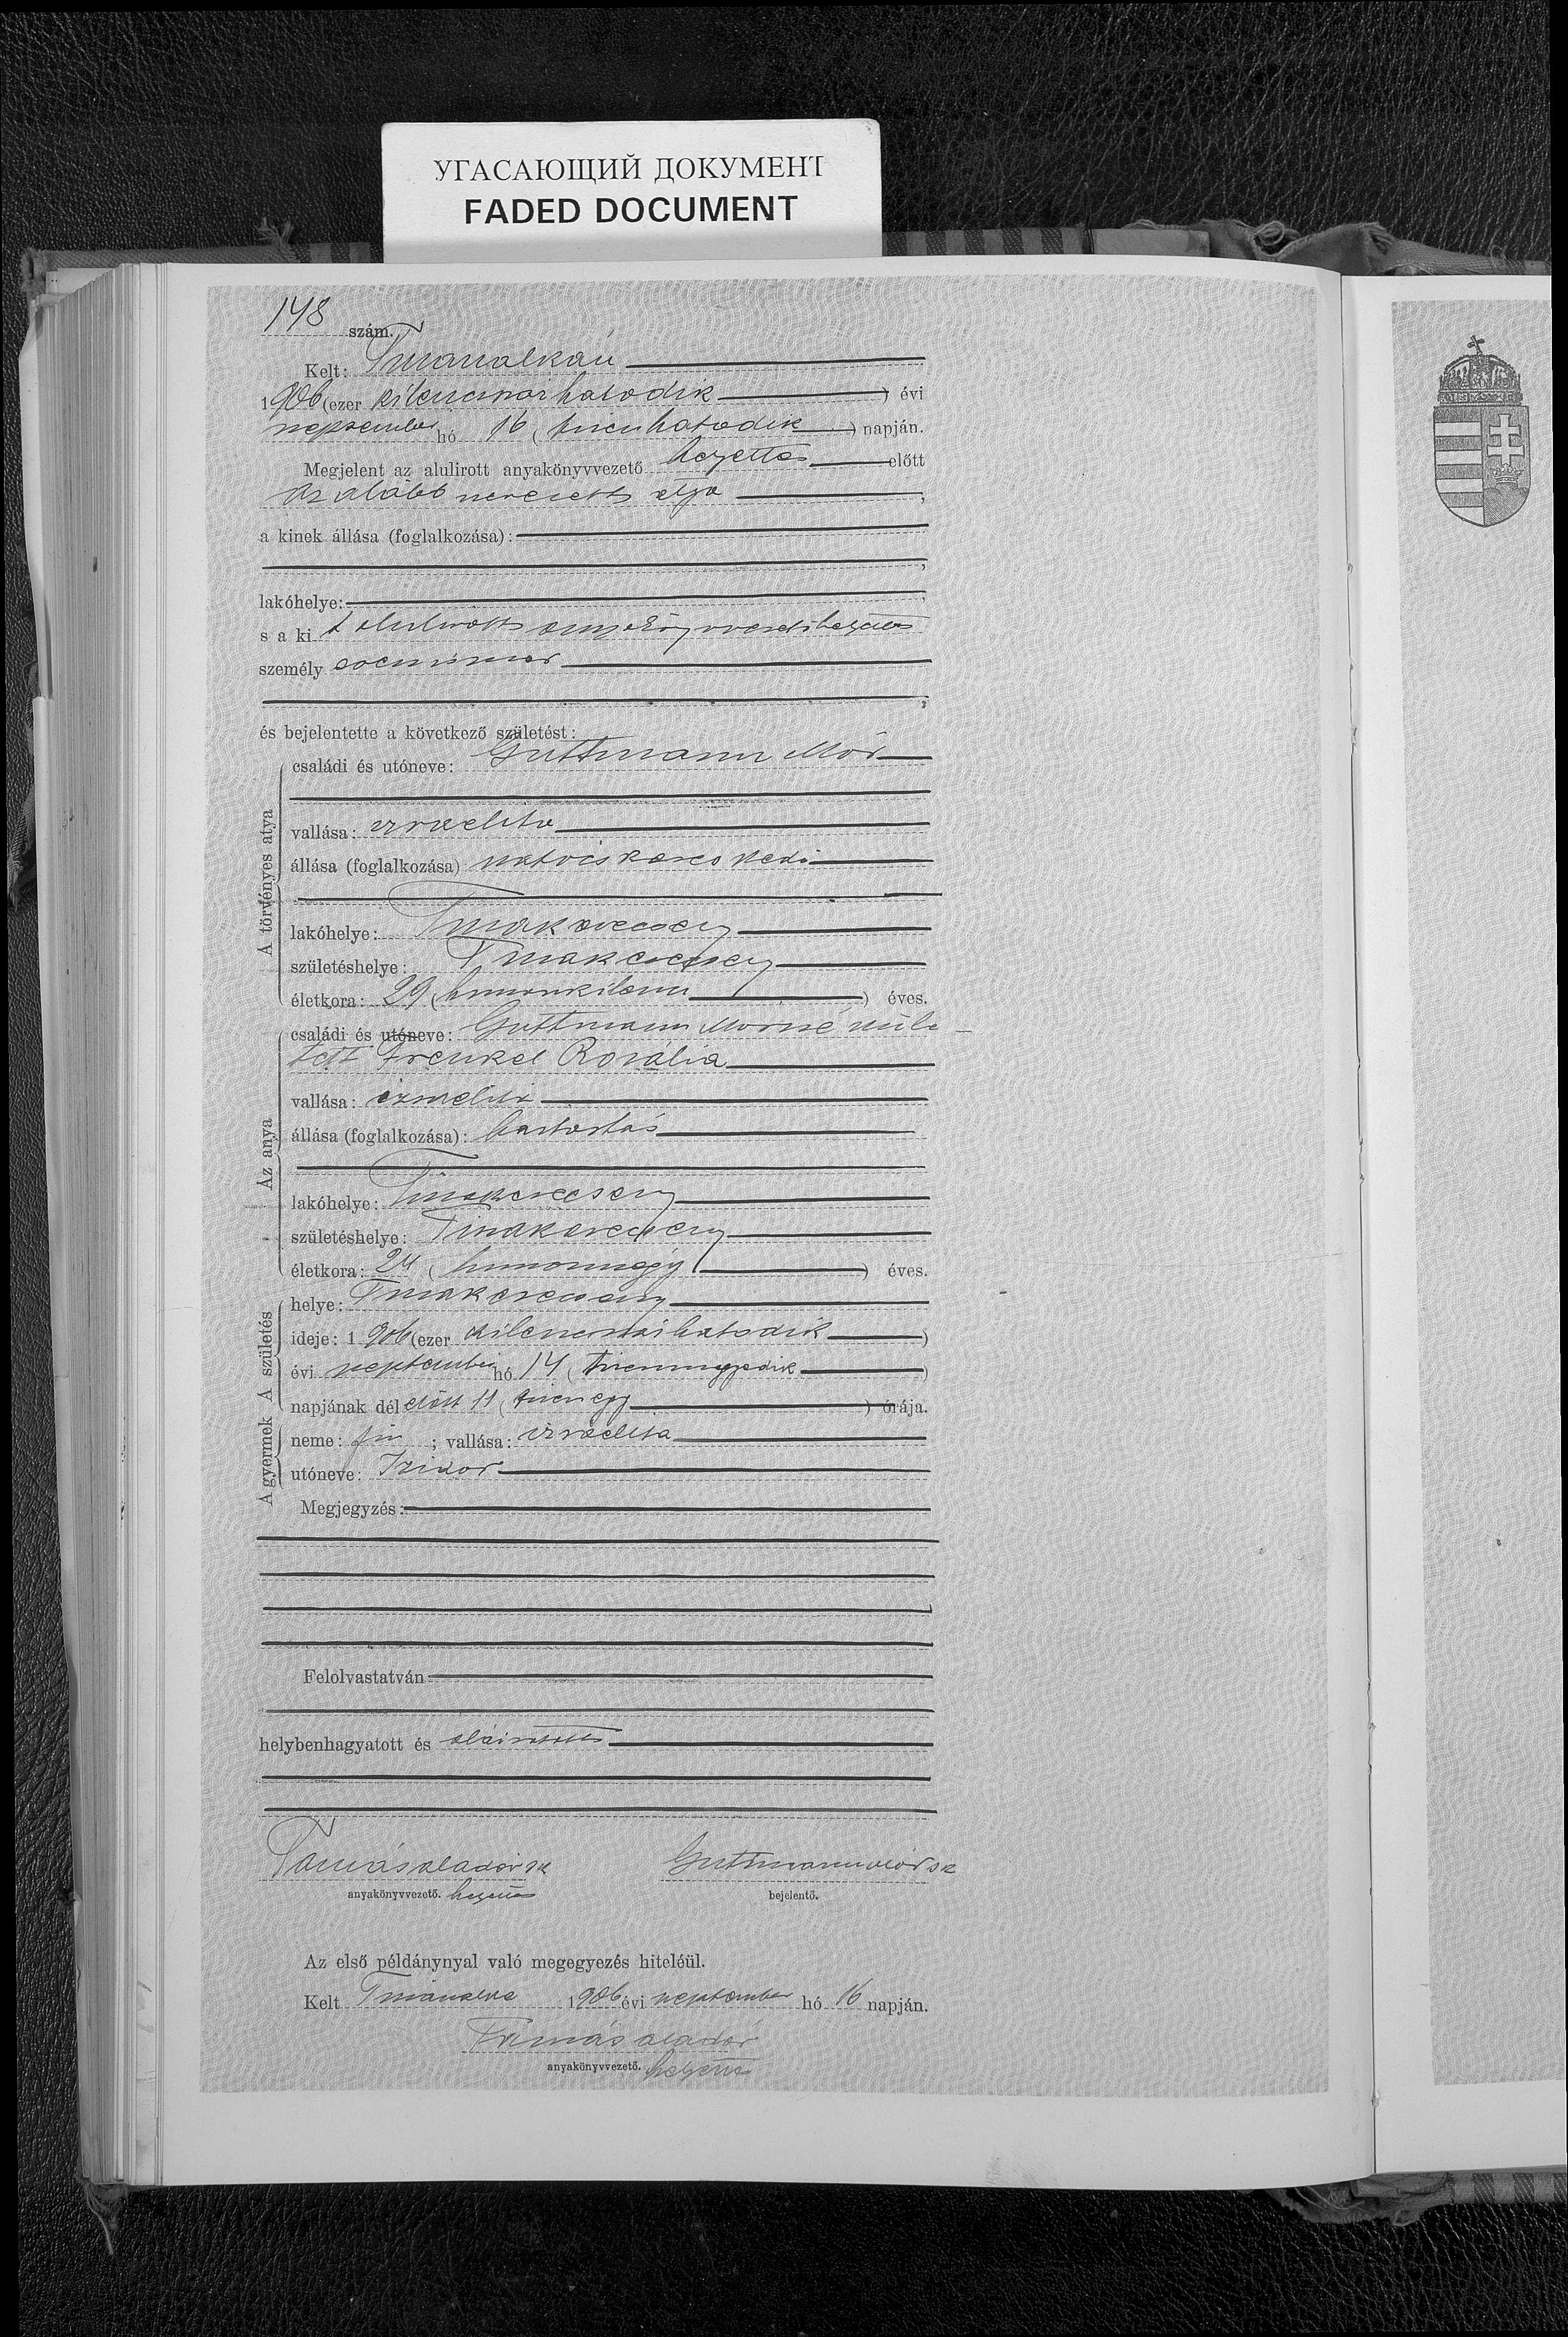 УГАСАЮЩИЙ ДОКУМЕНТ
FADED DOCUMENT
148 szám.
Kelt:
1906 (ezer kilencszázhatodik) évi
september hó 16 (tizenhatodik) napján.
Megjelent az alulirott anyakönyvvezető helyettes előtt
az alább nevezett atya,
a kinek állása (foglalkozása):
lakóhelye:
s a kit alulirott anyakönyvvezető helyettes
személy
és bejelentette a következő születést:
A törvényes atya
családi és utóneve: Guttmann Mór
vallása: izraelita
állása (foglalkozása)
lakóhelye: Tiszakerecseny
születéshelye: Tiszakerecseny
életkora: 29 (huszonkilenc) éves.
Az anya
családi és utóneve: Guttmann Mórné szüle-
tett Frenkel Rozália
vallása: izraelita
állása (foglalkozása): háztartás
lakóhelye: Tiszakerecseny
születéshelye: Tiszakerecseny
életkora: 24 (huszonnégy) éves.
A gyermek A születés
helye: Tiszakerecseny
ideje: 1906 (ezer kilencszázhatodik)
évi september hó 14 (tizennegyedik)
napjának délelőtt 11 (tizenegy) órája.
neme: fiu; vallása: izraelita
utóneve: Izidor
Megjegyzés:
Felolvastatván
helybenhagyatott és aláiratott
Tamás Aladár sk Guttmann Mór sk
anyakönyvvezető. helyettes bejelentő.
Az első példánynyal való megegyezés hiteléül.
Kelt 1906 évi september hó 16 napján.
Tamás Aladár
anyakönyvvezető. helyettes